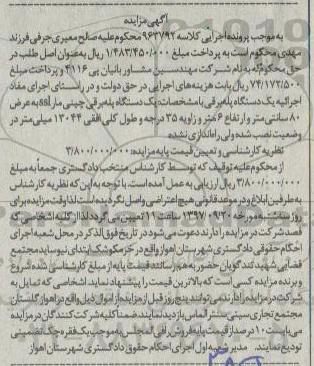 آگهی مزایده
به موجب پرونده اجرایی کلاسه ۹۶۳۷۹۲ محکوم علیه صالح معیری جرفی فرزند
مهدی محکوم است به پرداخت مبلغ ۱/۴۸۳/۴۵۰/۰۰۰ ریال به عنوان اصل طلب در
حق محکوم له به نام شرکت مهندسین مشاور بانیان پی ۴۱۱۶ و پرداخت مبلغ
۷۴/۱۷۲/۵۰۰ ریال بابت هزینه های اجرایی در حق دولت و در راستای اجرای مفاد
اجرائیه یک دستگاه پله برقی با مشخصات: یک دستگاه پله برقی چینی مارک به عرض
۸۰ سانتی متر و ارتفاع ۶ متر و زاویه ۳۵ درجه و طول کلی افقی ۱۳۰۴۴ میلی متر در
وضعیت نصب شده ولی راه اندازی نشده
نظریه کارشناسی و تعیین قیمت پایه مزایده: ۳/۸۰۰/۰۰۰/۰۰۰
از محکوم علیه توقیف که توسط کارشناس منتخب دادگستری جمعا به مبلغ
۳/۸۰۰/۰۰۰/۰۰۰ ریال ارزیابی به عمل آمده است. با توجه به این که نظریه کارشناس
به طرفین ابلاغ و در موعد قانونی هیچ اعتراضی واصل نگردیده است لذا وقت مزایده برای
روز سه شنبه مورخه ۱۳۹۷/۰۹/۲۰ ساعت ۱۱ تعیین می گردد لذا از کلیه اشخاصی که
قصد شرکت در مزایده را دارند دعوت می شود در تاریخ فوق الذکر در محل شعبه اجرای
احکام حقوقی دادگستری شهرستان اهواز واقع در خرمکوشک ابتدای نیوساید مجتمع
قضایی شهید تندگویان حضور به هم رسانند قیمت پایه از مبلغ کارشناسی شده شروع
و برنده مزایده کسی است که بالاترین قیمت را پیشنهاد نماید. اشخاصی که تمایل به
شرکت در مزایده را دارند می توانند پنج روز قبل از مزایده از اموال ذیل واقع در اهواز گلستان
مجتمع تجاری سیتی سنتر الماس بازدید نمایند. ضمنا کلیه شرکت کنندگان در مزایده
می بایست ۱۰ درصد از قیمت پایه فروش را فی المجلس به موجب یک فقره چک تضمینی
تودیع نمایند. مدیر شعبه اول اجرای احکام حقوق دادگستری شهرستان اهواز